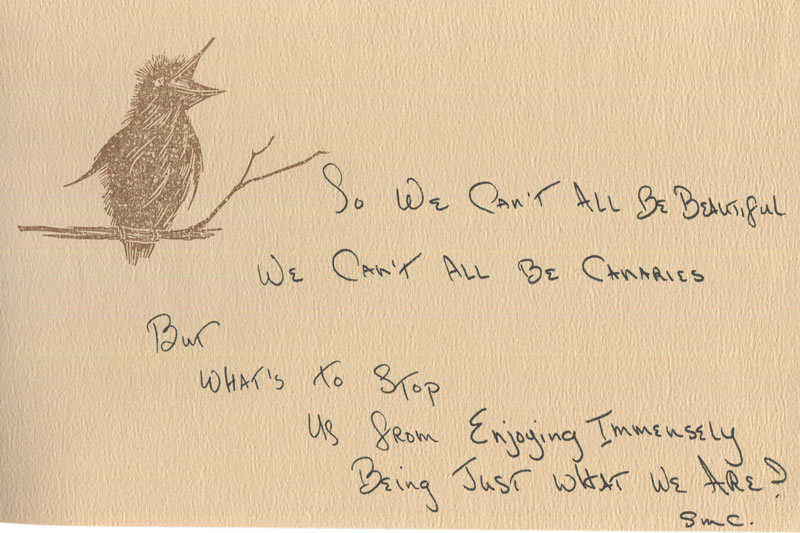 So We Can't All Be Beautiful
We Can't All Be Canaries
But
What's to Stop
Us from Enjoying Immensely
Being Just What We Are?
smc.